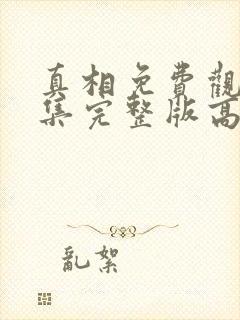 真相免費觀
集完整版高
亂絮